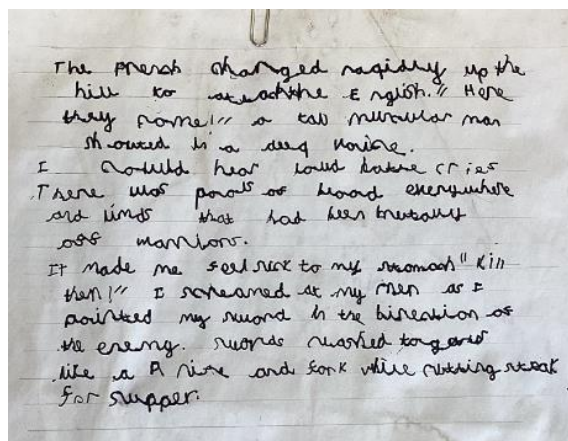 The french charged rapidly up the
hill to attack the English." Here
they come!" a tall muscular man
shouted in a deep voice.
I could hear loud battle cries
There was pools of blood everywhere
and limbs that had been brutally
off warriors.
It made me feel sick to my stomach "Kill
them!" I screamed at my men as I
pointed my sword in the direction of
the enemy. swords clashed together
like a knife and fork while cutting steak
for supper.